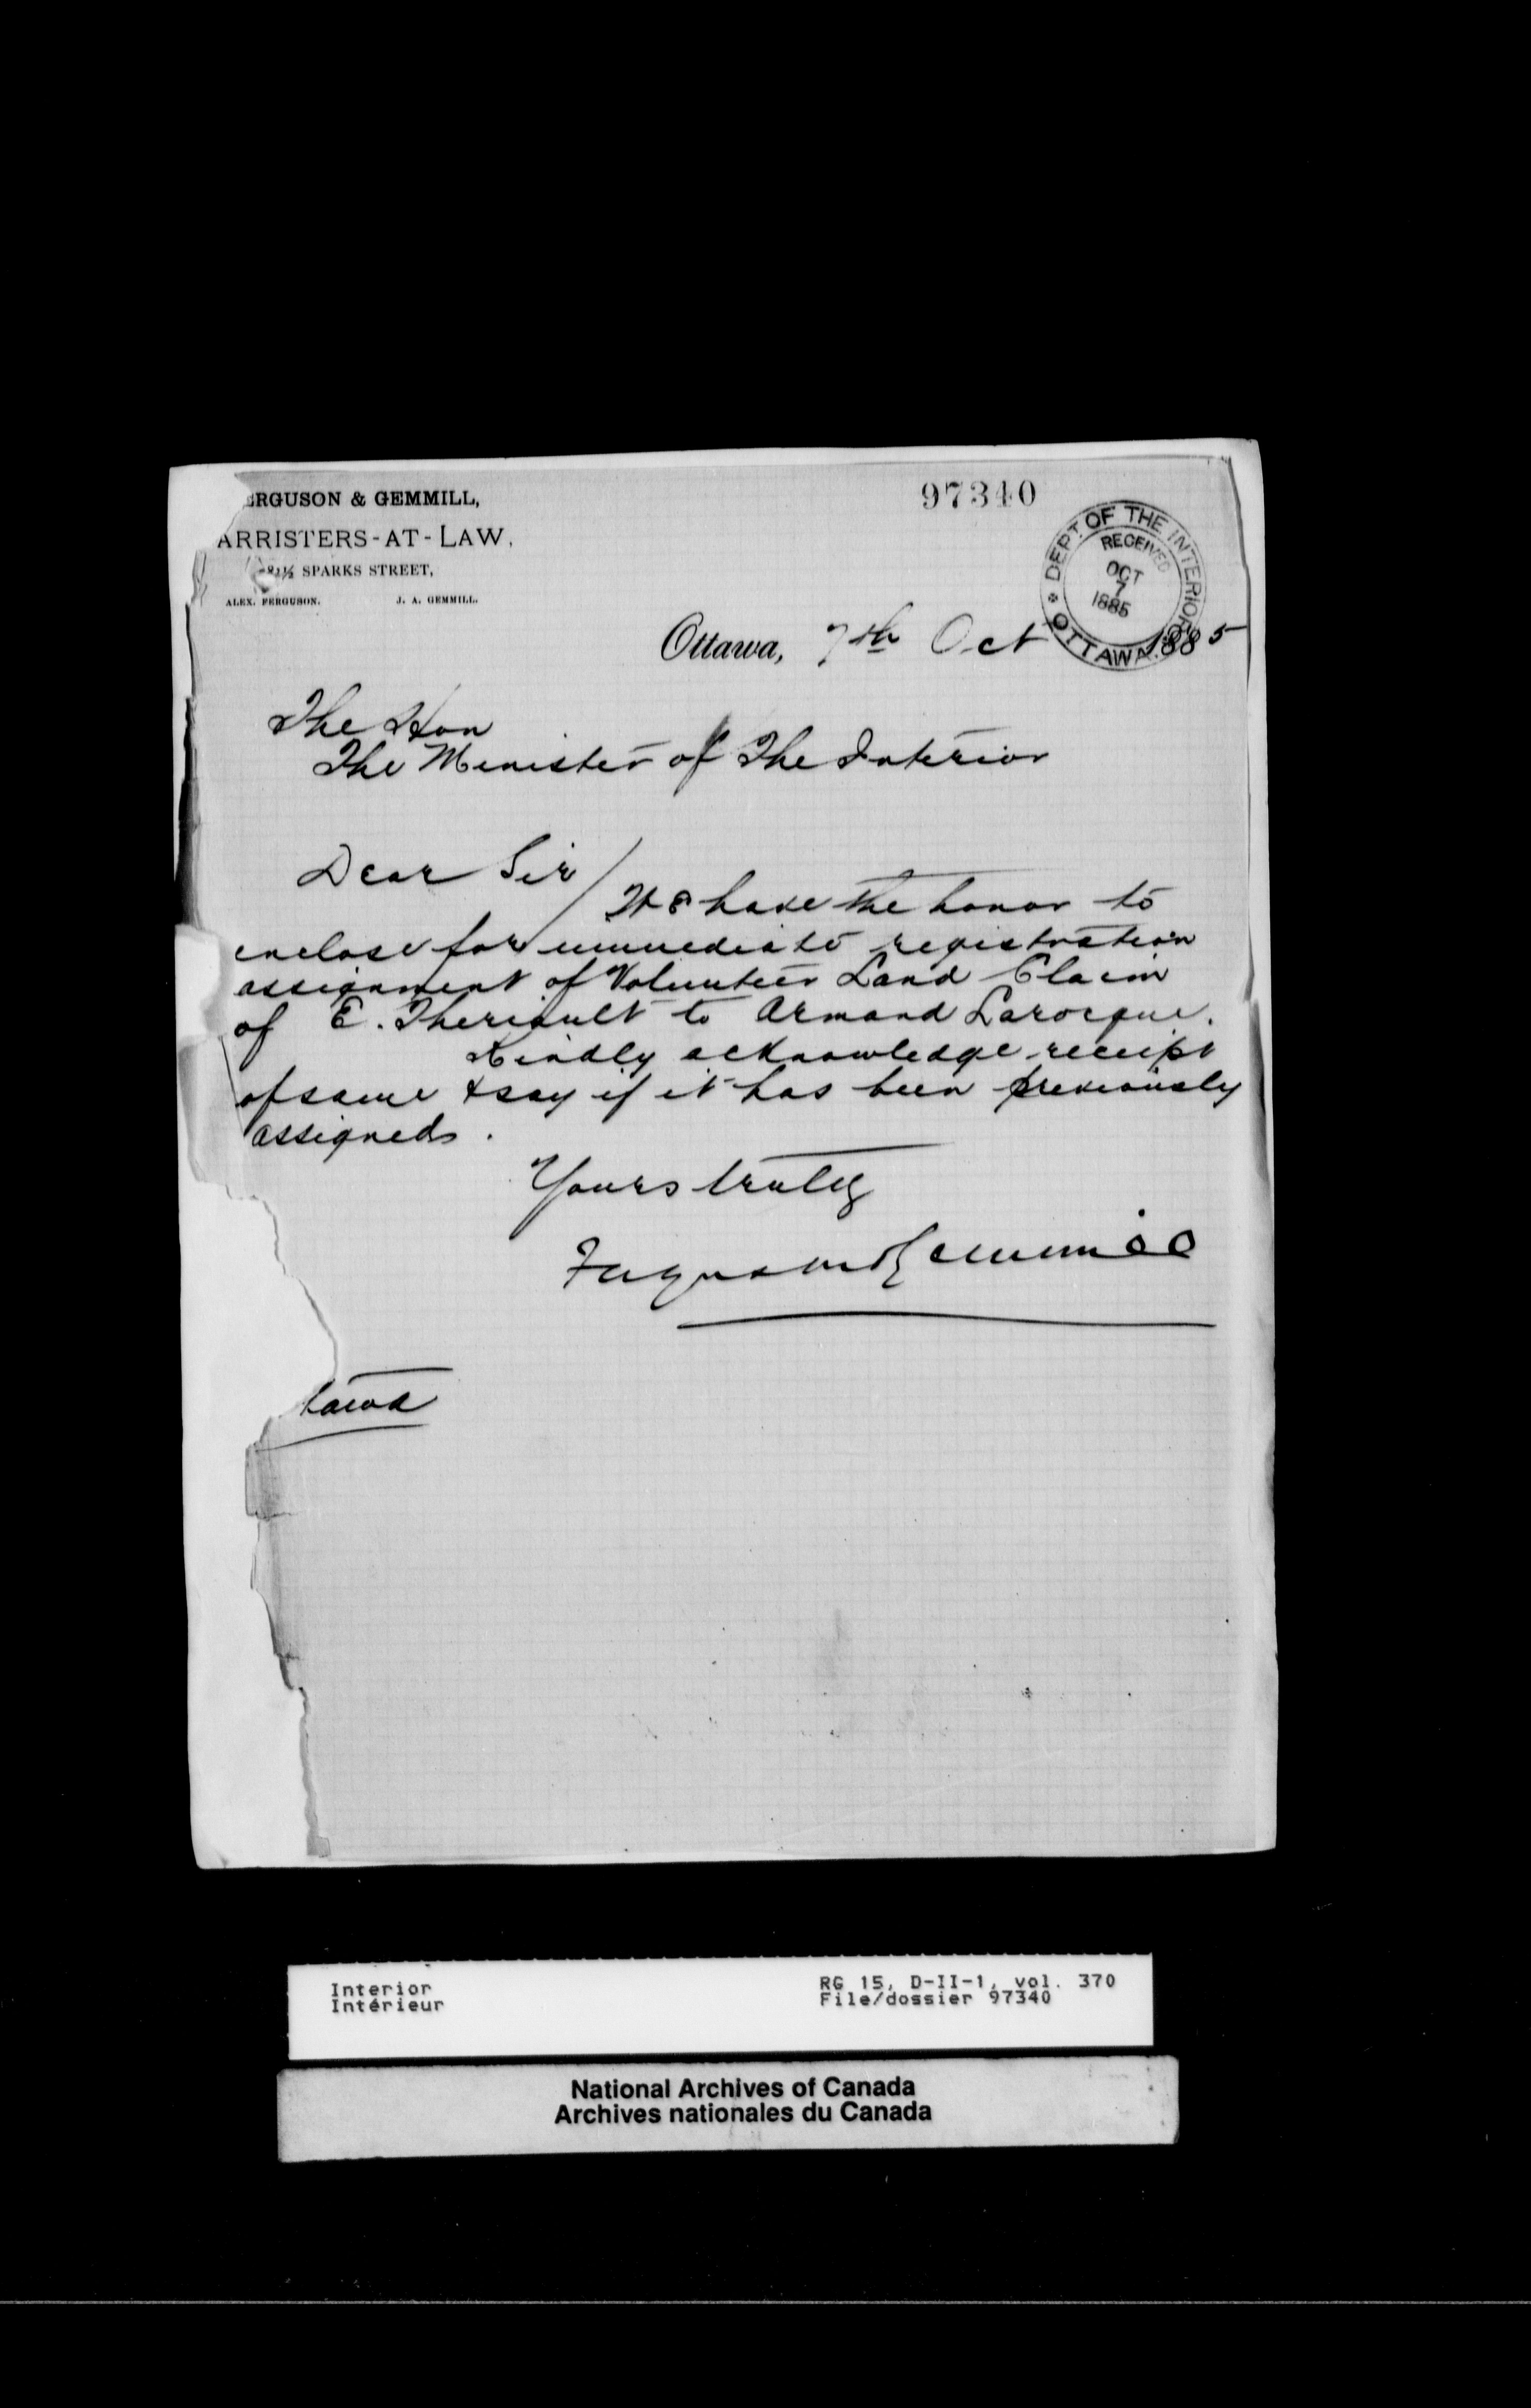 ERGUSON & GEMMILL,
ARRISTERS-AT-LAW,
½ SPARKS STREET,
ALEX. FERGUSON. J. A. GEMMILL.
97340
DEPT. OF THE INTERIOR
RECEIVED
OCT
7
1885
OTTAWA.
Ottawa, 7th Oct 1885
The Hon
The Minister of The Interior
Dear Sir/
We have the honor to
enclose for immediate registration
assignment of Volunteer Land Claim
of E. Theriault to Armand Larocque.
Kindly acknowledge receipt
of same & say if it has been previously
assigned.
Yours truly
Ferguson & Gemmill
tawa
Interior
Intérieur
RG 15, D-II-1, vol. 370
File/dossier 97340
National Archives of Canada
Archives nationales du Canada